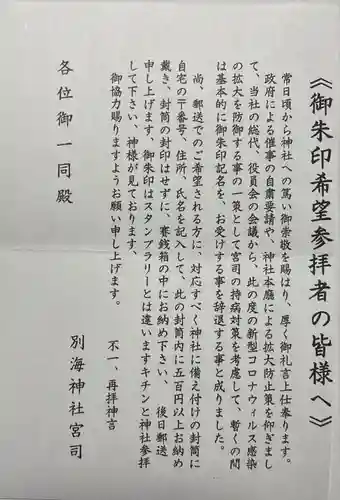 《御朱印希望参拝者の皆様へ》
常日頃から神社への篤い御崇敬を賜はり、厚く御礼言上仕奉ります。
政府による催事の自粛要請や、神社本廳による拡大防止策を仰ぎまし
て、当社の総代、役員会の会議から、此の度の新型コロナウィルス感染
の拡大を防御する事の一策として宮司の持病対策を考慮して、暫くの間
は基本的に御朱印記名を、お受けする事を辞退する事と成りました。
尚、郵送でのご希望される方に、対応すべく神社に備え付けの封筒に
自宅の〒番号、住所、氏名を記入して、此の封筒内に五百円以上お納め
戴き、封筒の封印はせずに、賽銭箱の中にお納め下さい、 後日郵送
申し上げます、御朱印はスタンプラリーとは違いますキチンと神社参拝
して下さい、神様が見ております、
御協力賜りますようお願い申し上げます。 不一、再拝神言
別海神社宮司
各位御一同殿